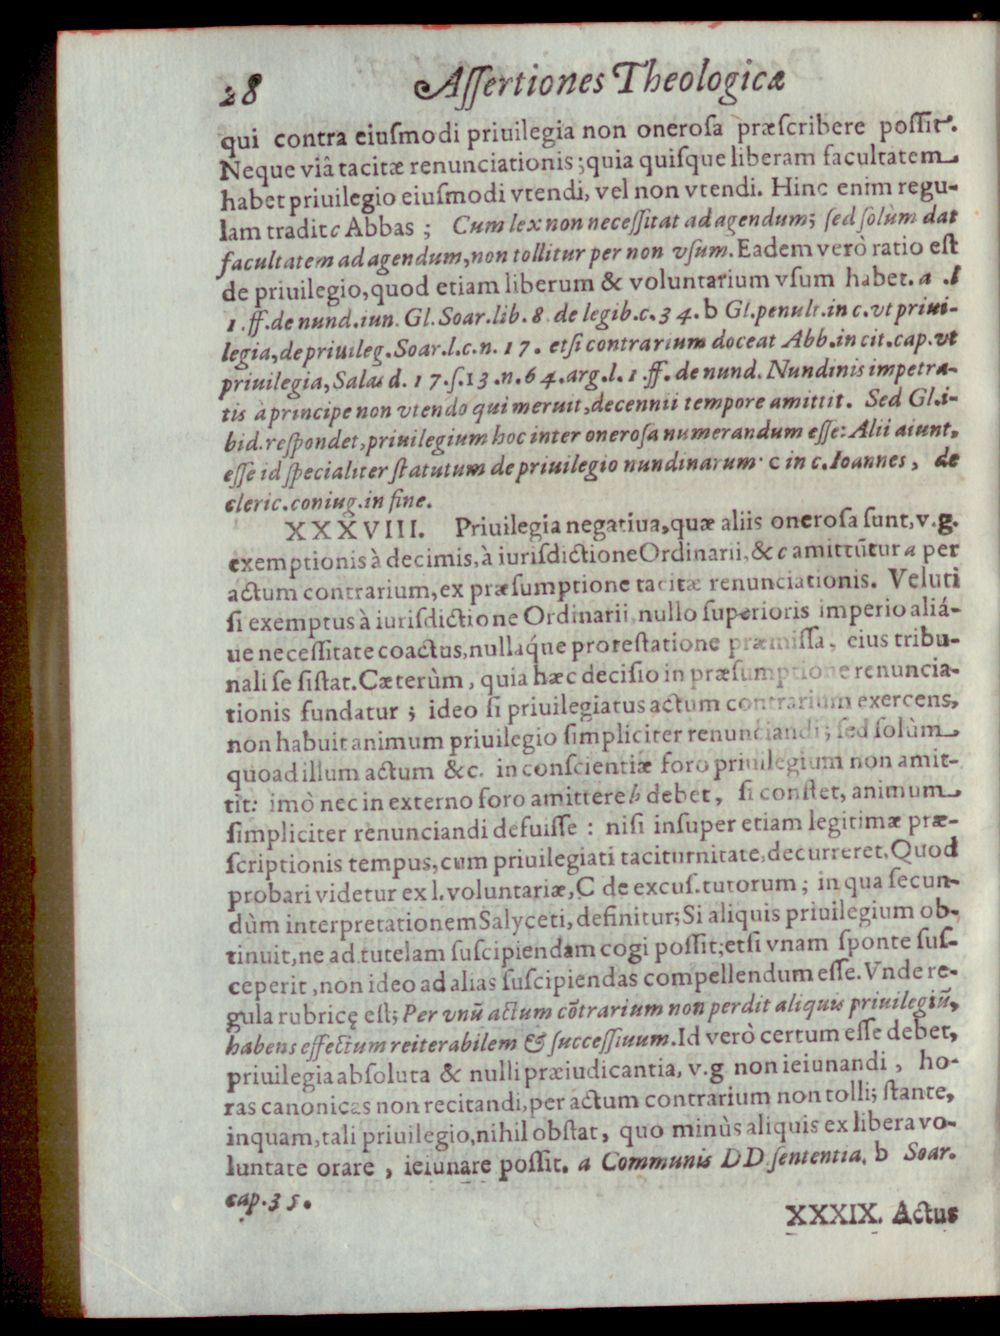 28 Aſſertiones Theologicæ
qui contra eiuſmodi priuilegia non oneroſa præſcribere poſſit.
Neque viâ tacitæ renunciationis; quia quiſque liberam facultatem
habet priuilegio eiuſmodi vtendi, vel non vtendi. Hinc enim regu-
lam tradit c Abbas ; Cum lex non neceſſitat ad agendum; ſed ſolùm dat
facultatem ad agendum, non tollitur per non vſum. Eadem verò ratio eſt
de priuilegio, quod etiam liberum & voluntarium vſum habet. a .l
1. ff. de nund. iun. Gl. Soar. lib. 8. de legib. c. 34. b Gl. penult. in c. vt priui-
legia, de priuileg. Soar. l. c. n. 17. etſi contrarium doceat Abb. in cit. cap. vt
priuilegia, Salas d. 17. ſ. 13. n. 64. arg. l. 1. ff. de nund. Nundinis impetra-
tis à principe non vtendo qui meruit, decennii tempore amittit. Sed Gl. i-
bid. reſpondet, priuilegium hoc inter oneroſa numerandum eſſe: Alii aiunt,
eſſe id ſpecialiter ſtatutum de priuilegio nundinarum. c in c. Ioannes, de
cleric. coniug. in fine.
XXXVIII. Priuilegia negatiua, quæ aliis oneroſa ſunt, v. g.
exemptionis à decimis, à iurisdictione Ordinarii, &c amittũtur a per
actum contrarium, ex præſumptione tacitæ renunciationis. Veluti
ſi exemptus à iurisdictione Ordinarii, nullo ſuperioris imperio aliá-
ue neceſſitate coactus, nullaq́ue proteſtatione præmiſſa, eius tribu-
nali ſe ſiſtat. Cæterùm, quia hæc deciſio in præſumptione renuncia-
tionis fundatur ; ideo ſi priuilegiatus actum contrarium exercens,
non habuit animum priuilegio ſimpliciter renunciandi; ſed ſolùm
quoad illum actum &c. in conſcientiæ foro priuilegium non amit-
tit: imò nec in externo foro amittere b debet, ſi conſtet, animum
ſimpliciter renunciandi defuiſſe : niſi inſuper etiam legitimæ præ-
ſcriptionis tempus, cum priuilegiati taciturnitate, decurreret. Quod
probari videtur ex l. voluntariæ, C de excuſ. tutorum ; in qua ſecun-
dùm interpretationem Salyceti, definitur; Si aliquis priuilegium ob-
tinuit, ne ad tutelam ſuſcipiendam cogi poſſit; etſi vnam ſponte ſuſ-
ceperit, non ideo ad alias ſuſcipiendas compellendum eſſe. Vnde re-
gula rubricę eſt; Per vnũ actum cõtrarium non perdit aliquis priuilegiũ,
habens effectum reiterabilem & ſucceſſiuum. Id verò certum eſſe debet,
priuilegia abſoluta & nulli præiudicantia, v. g non ieiunandi, ho-
ras canonicas non recitandi, per actum contrarium non tolli; ſtante,
inquam, tali priuilegio, nihil obſtat, quo minùs aliquis ex libera vo-
luntate orare, ieiunare poſſit. a Communis DD. ſententia. b Soar.
cap. 35.
XXXIX. Actus